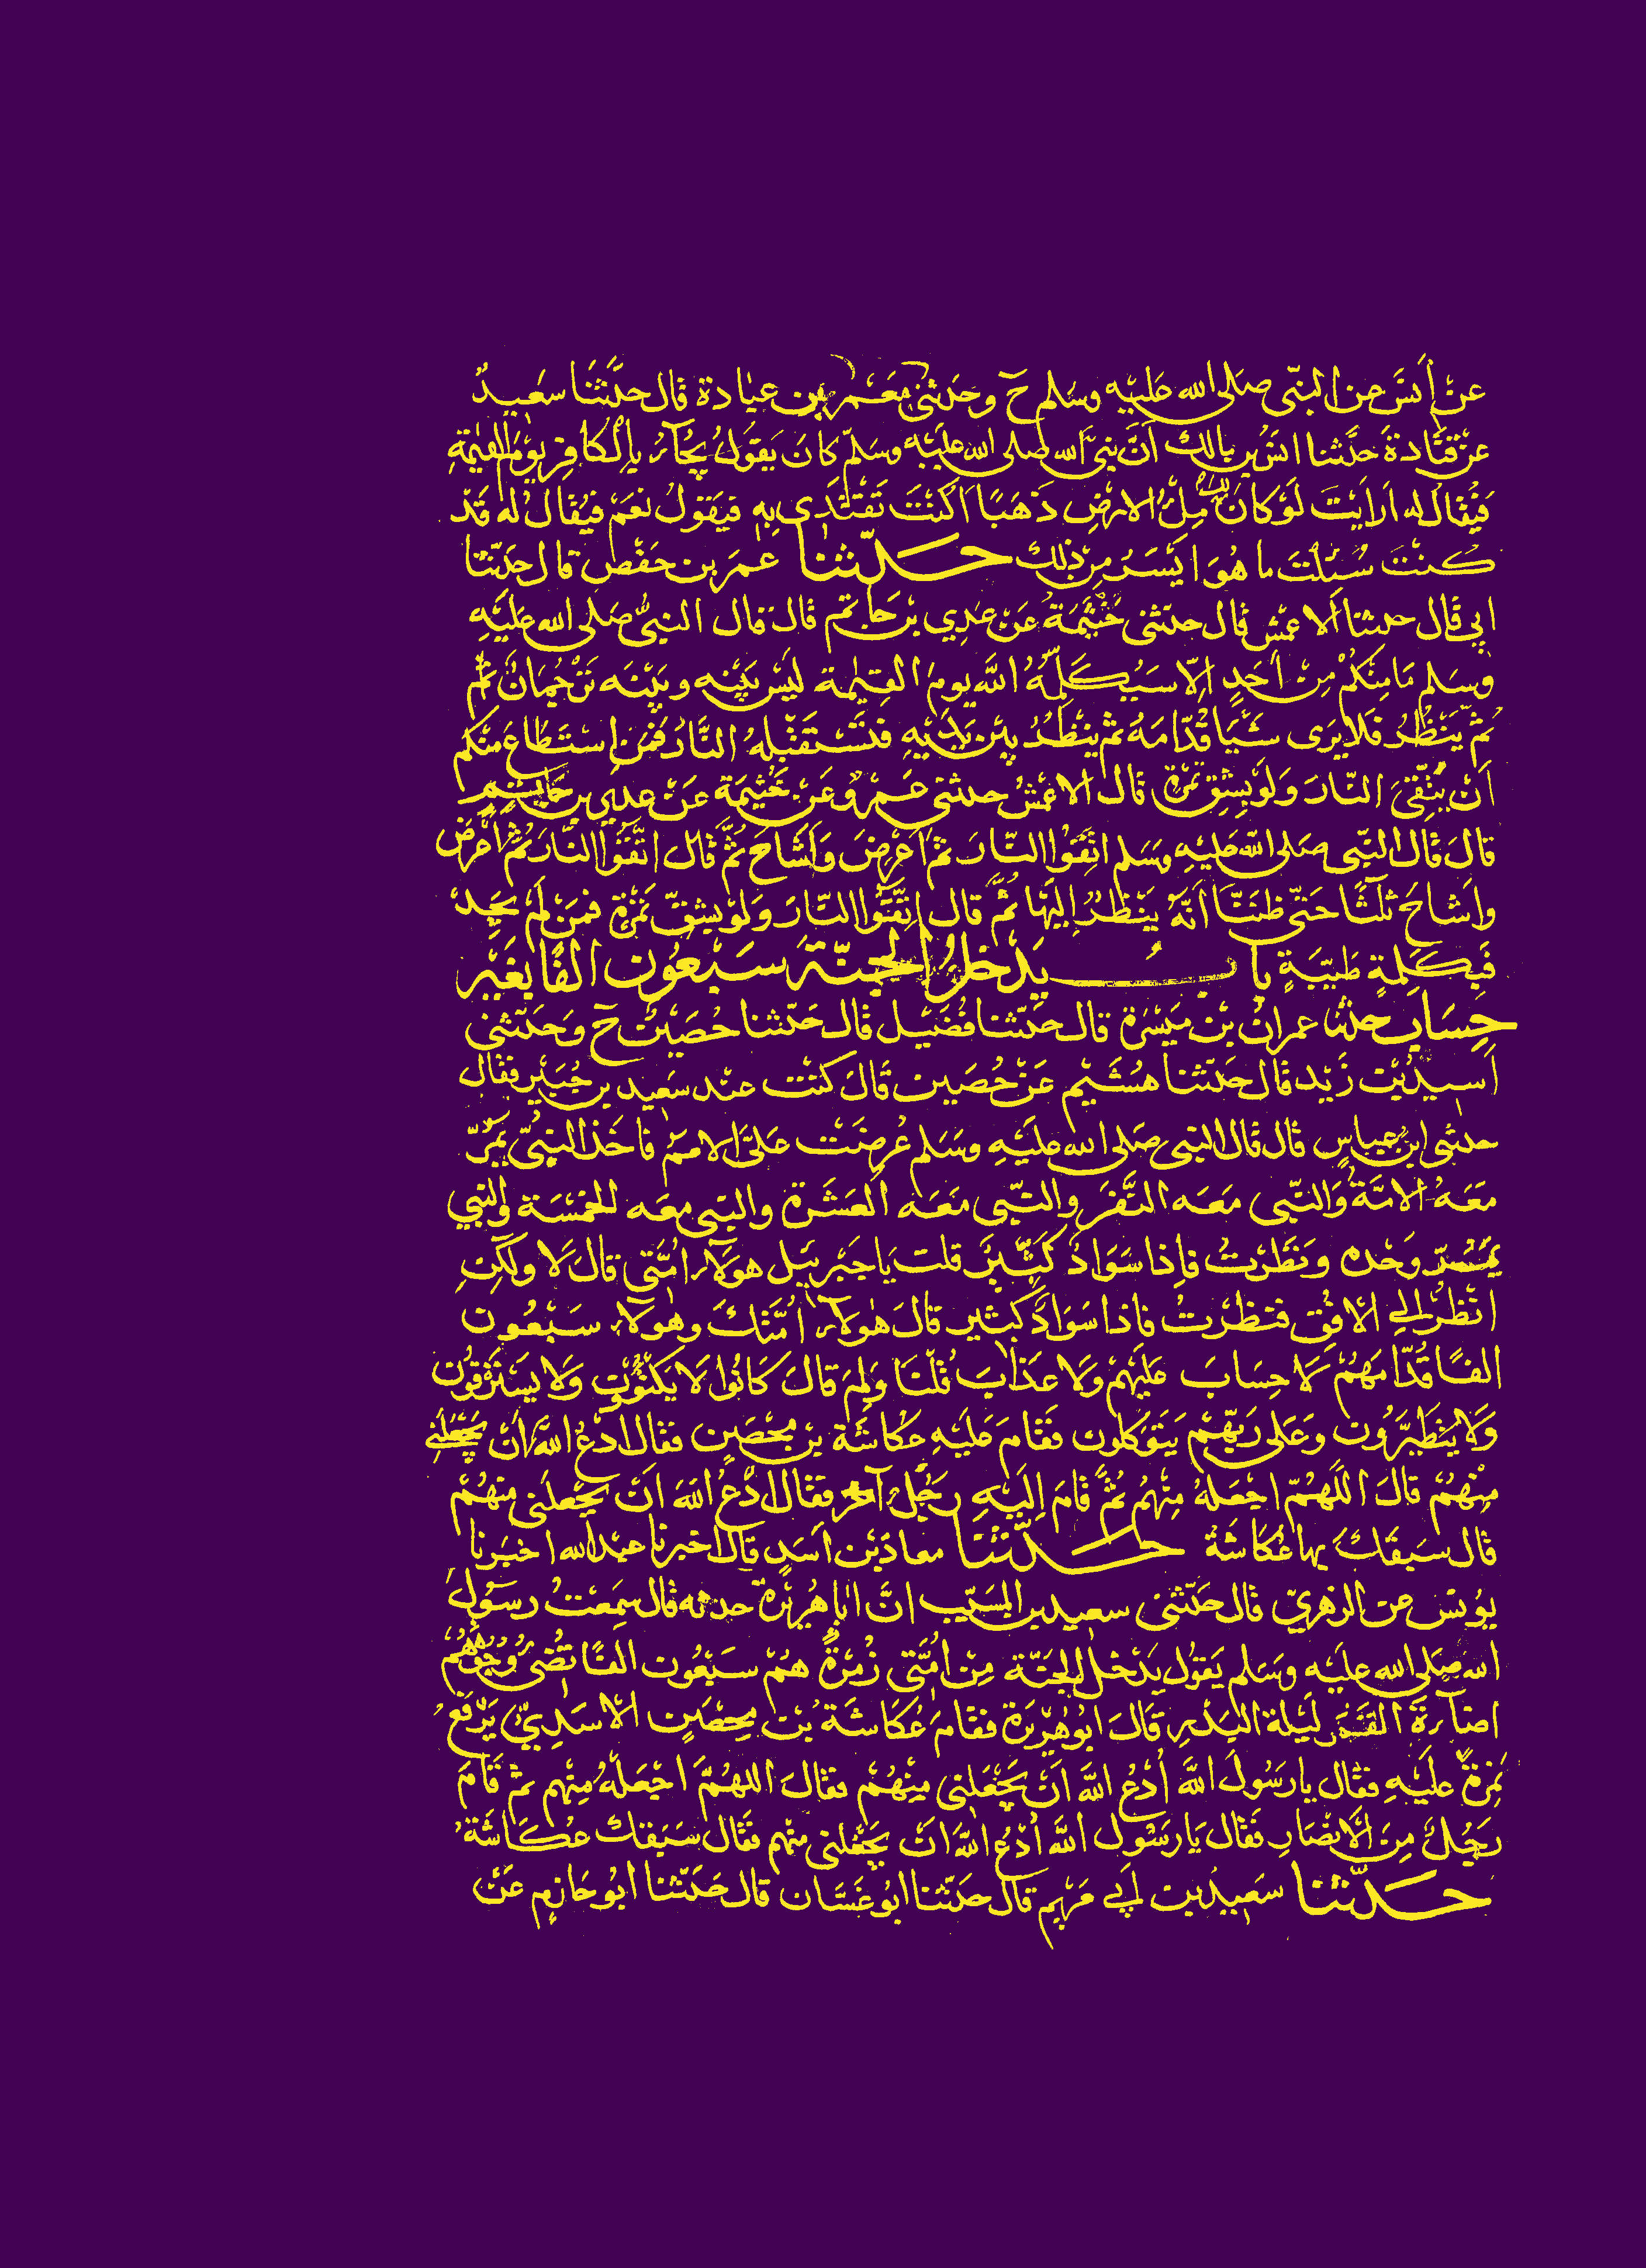 عَنْ أَنَسٍ عن النبّى صَلى الله عَليْه وسَلم حَ وحَدثنى مَعْمر بن عبادة قال حدَّثَنَا سَعِيدٌ
عَنْ قتَادةَ حَدَّثنا انسُ بن مالك اَنَّ نبىَّ الله صلى الله عليْه وسَلّم كانَ يَقوُلُ يُجَآءُ بالكافِر يوْمَ القيٰمَةِ
فَيُقَالُ له اَرَاَيْتَ لَوْ كانَ لك مِلْءُ الارْضِ ذَهَبًا اَكُنْتَ تَفْتَدِى بِهِ فيَقولُ نعَمْ فيُقَالُ له قَدْ
كُنْتَ سُئِلْتَ ما هُوَ اَيْسَرُ مِنْ ذٰلك حَدّثنا عُمَر بن حَفْص قال حَدّثنَا
ابِي قال حدثنا الاَعمش قال حدّثنى خَيْثَمَةُ عَنْ عَدِي بْن حَاتم قالَ قال النبىُّ صَلى الله عَليْهِ
وَسَلم مَا مِنْكُمْ مِنْ اَحَدٍ اِلّا سَيُكَلِّمُهُ اللَّه يومَ القيٰمة ليْسَ بَيْنِه وبَيْنَه تَرْجُمَانٌ ثمَّ
ثُمّ يَنْظُرُ فَلا يَرَى شَيْأً قُدّامَهُ ثمّ يَنْظُرُ بيْن يَدَيْهِ فتَسْتَقْبِلُهُ النَّارُ فَمنِ اِسْتَطَاعَ منْكم
اَنْ يَتَّقِىَ النّارَ وَلَوْ بِشِقِّ تَمْرَةٍ قال الاعْمَشُ حدثنى عَمْرٌو عَنْ خَيْثَمَة عَنْ عدِي بن حَاتمٍ
قالَ قال النَّبِى صَلى اللّه عَليْهِ وسَلم اتَّقوُا النّارَ ثمّ اَعْرَضَ وَاَشَاحَ ثُمَّ قالَ اتَّقُوْا النَّارَ ثمّ اَعْرَضَ
واَشَاحَ ثَلٰثًا حَتّى ظَنَنَّا اَنّهُ يَنْظُرُ اِليْهَا ثُمَّ قال اتَّقُوْا النّارَ وَلَوْ بشقّ تَمْرَةٍ فمَنْ لَمْ يَجِدْ
فَبكَلِمةٍ طَيّبَةٍ بابُ يَدْخلُ الجنّةَ سَبْعوُن الفًا بغَيْر
حِسَابٍ حدثنا عمرانُ بْنُ مَيْسَرَة قال حدّثنا فُضَيْل قال حَدّثنا حُصَيْنٌ حَ وحَدّثنى
اَسيدُ بْنُ زَيْد قال حَدّثنا هُشَيْم عَنْ حُصَيْن قَالَ كنْتُ عنْد سَعيد بن جُبَيْر فقال
حدثنى ابن عباسٍ قال قال النبى صَلى الله عليْهِ وسَلم عُرِضَتْ عَلىّ الاُمَمُ فاَخَذ النبىّ يَمُرّ
مَعَهُ الامّةُ وَالنّبى مَعَه النَّفَرُ والنّبى مَعَهُ العَشَرة والنبى معَه الخَمْسَة والنبي
يَمُرّ وَحْدَه ونَظَرْتُ فإذا سَوَادٌ كَثِيْرٌ قلت يَا جَبْرَئيل هولآءِ اُمّتى قال لا ولٰكنِ
انْظُرْ اِلى الاُفُقِ فنظَرْتُ فاذا سَوَادٌ كثير قالَ هٰولآءِ امَّتكَ وهٰولَآءِ سَبْعُون
الفًا قُدّامَهُمْ لَا حِسَابَ عَليْهمْ وَلا عَذابَ قُلْنَا وَلِمَ قالَ كَانُوا لا يَكْتَوُونَ وَلا يَسْتَرْقُون
وَلا يَتَطَيَّرُونَ وعَلى رَبّهمْ يَتوَكلون فقَامَ عَليْهِ عكاشة بن مِحْصَنٍ فقال ادعُ اللّهَ اَنْ يَجْعَلنِى
مِنْهُمْ قالَ اللّهُمّ اجعَلْهُ مِنْهُمْ ثُمَّ قامَ اِليْهِ رَجُلٌ آخر فقال ادْعُ اللّهَ اَنْ يَجْعلنى منهُمْ
قال سَبَقَكَ بها عُكاشَةُ حَدّثَنَا معاذ بْن اَسَدٍ قال اخبرنا عبد الله اخبَرنا
يوُنسُ عن الزهرِيّ قال حَدّثنى سعيد بن المسَيّب انَّ ابا هُرَيْرَةَ حدثه قال سَمِعْتُ رسوُلَ
الله صَلى الله عليْه وسَلم يَقوُلُ يَدْخلُ الجنّة مِنْ اُمّتى زُمْرَةٌ هُمْ سَبْعُون الفًا تُضئُ وُجُوهُهُمْ
اضآءةَ القَمَرِ ليْلة البَدْرِ قال ابُو هُرَيْرَة فقَامَ عُكَاشَةُ بْنُ مِحْصَنٍ الاسَدِيّ يَرْفَعُ
نَمِرَةً عليْهِ فقال يا رسُولَ اللهِ اُدْعُ اللّهَ اَنْ يَجْعَلنى مِنهُمْ فقَال اللهُمَّ اجْعَلهُ مِنْهم ثمّ قَامَ
رَجُلٌ مِنَ الاَنْصَارِ فقَال يَا رَسُول اللّهِ اُدْعُ اللّهَ انْ يَجْعَلنى منْهم فقال سَبَقك عُكَاشَةُ
حَدّثنا سَعِيدُ بن اَبى مَرْيَم قال حَدّثنا ابُو غَسّان قال حَدّثنا ابُو حَازم عَنْ